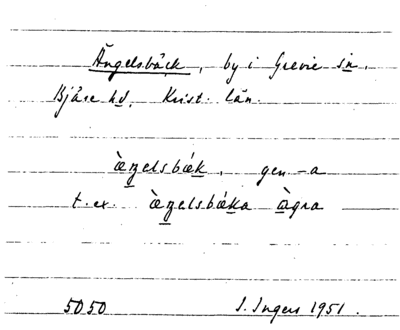 Ängelsbäck, by i Grevie sn.
Bjäre hd. Krist. län.
æ̀ŋelsbǽk, gen -a
t.ex. æ̀ŋelsbǽka àgra
5050 I. Ingers 1951.